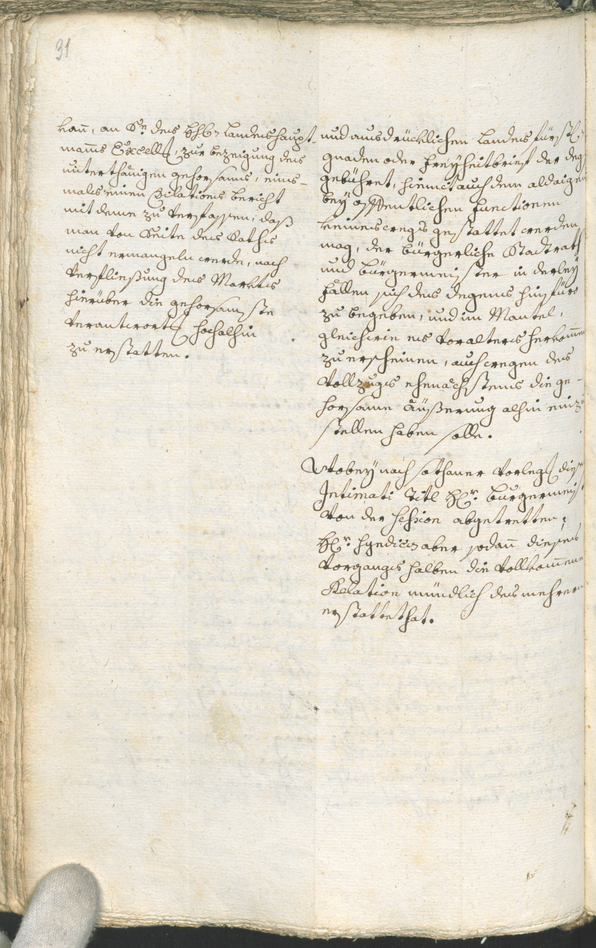 31
kan̄, an Sr. des HHln Landeshaupt-
manns Excellz, zur bezeigung des
unterthänigen gehorsams, eins-
malseinen Relations bericht
mit deme zu verfassen, daß
man von Seite des Raths
nicht ermangeln werde, nach
verfließung des Markts
hierüber die gehorsamste
verantwortg hochalhin
zu erstatten.
und ausdrücklichen Landesfürstl:
gnaden oder freyheitbrief der deg
gebühret, hiemit auch dem aldaigen
bey offentlichen functionen
keineswegs gestattet werden
mag, der bürgerliche Stadtrath
und bürgermeister in derley
fällen sich des degens hinfüro
zu begeben, und im Mantel,
gleichwie es voralters herkom̄en
zu erscheinen, auch wegen des
vollzugs ehenächstens die ge-
horsame äusserung alhin einzu
stellen haben solle.
Wobey nach sothaner vorlegg dises
Intimati Titl Hr. burgermeister
von der session abgetretten;
Hr. syndicus aber sodan̄ dieses
vorgangs halben die vollkom̄ene
Relation mündlich des mehrern
erstattet hat.